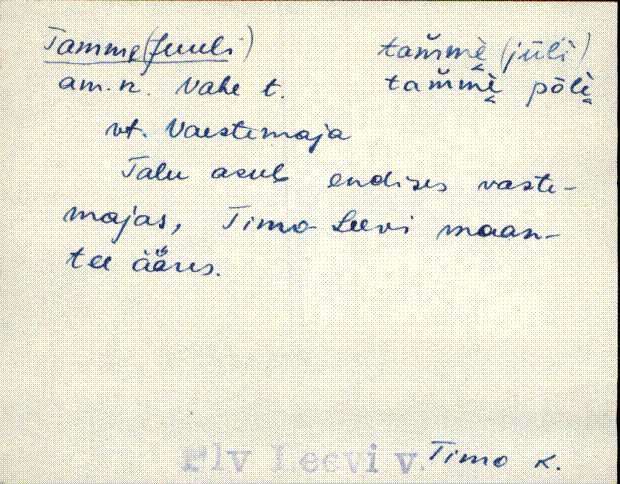 Tamme (Juuli) tam̆mè̬ (jūl̀i)
am. n. Vahe t. tam̆mè̬ pōl̀è̬
vt. Vaestemaja
Talu asub endises vaste-
majas, Timo-Leevi maan-
tee ääres.
Plv Leevi v. Timo k.